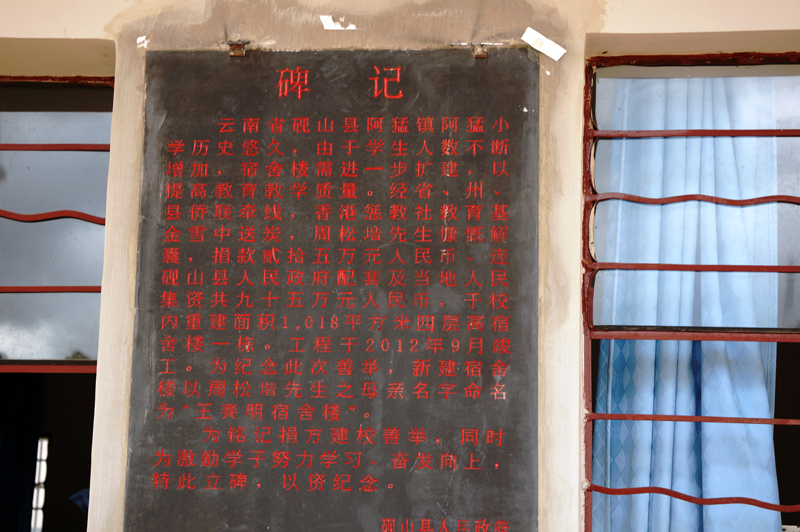 碑记
云南省砚山县阿猛镇阿猛小
学历史悠久，由于学生人数不断
增加，宿舍楼需进一步扩建，以
提高教育教学质量。经省、州、
县侨联牵线，香港慈教社教育基
金雪中送炭，周松堦先生慷慨解
囊，捐款贰拾五万元人民币，连
砚山县人民政府配套及当地人民
集资共九十五万元人民币，于校
内重建面积1,018平方米四层高宿
舍楼一栋。工程于2012年9月竣
工。为纪念此次善举，新建宿舍
楼以周松堦先生之母亲名字命名
为“王亮明宿舍楼”。
为铭记捐方建校善举，同时
为激励学子努力学习、奋发向上，
特此立碑，以资纪念。
砚山县人民政府